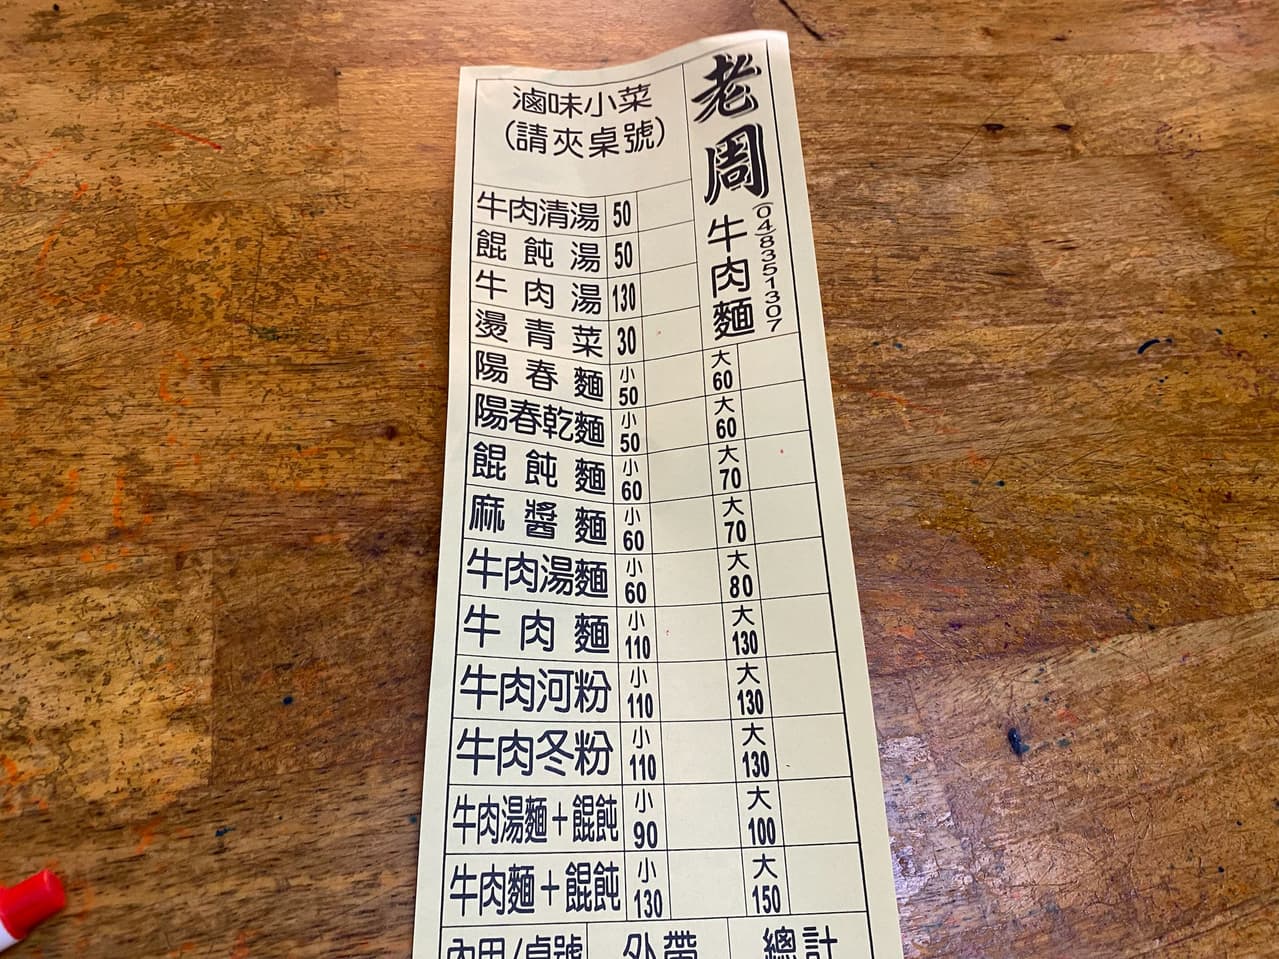 老周
牛肉麵
(048351307
滷味小菜
(請夾桌號)
牛肉清湯 50
餛飩湯 50
牛肉湯 130
燙青菜 30
陽春麵 小50 大60
陽春乾麵 小50 大60
餛飩麵 小60 大70
麻醬麵 小60 大70
牛肉湯麵 小60 大80
牛肉麵 小110 大130
牛肉河粉 小110 大130
牛肉冬粉 小110 大130
牛肉湯麵+餛飩 小90 大100
牛肉麵+餛飩 小130 大150
內用/桌號 外帶 總計